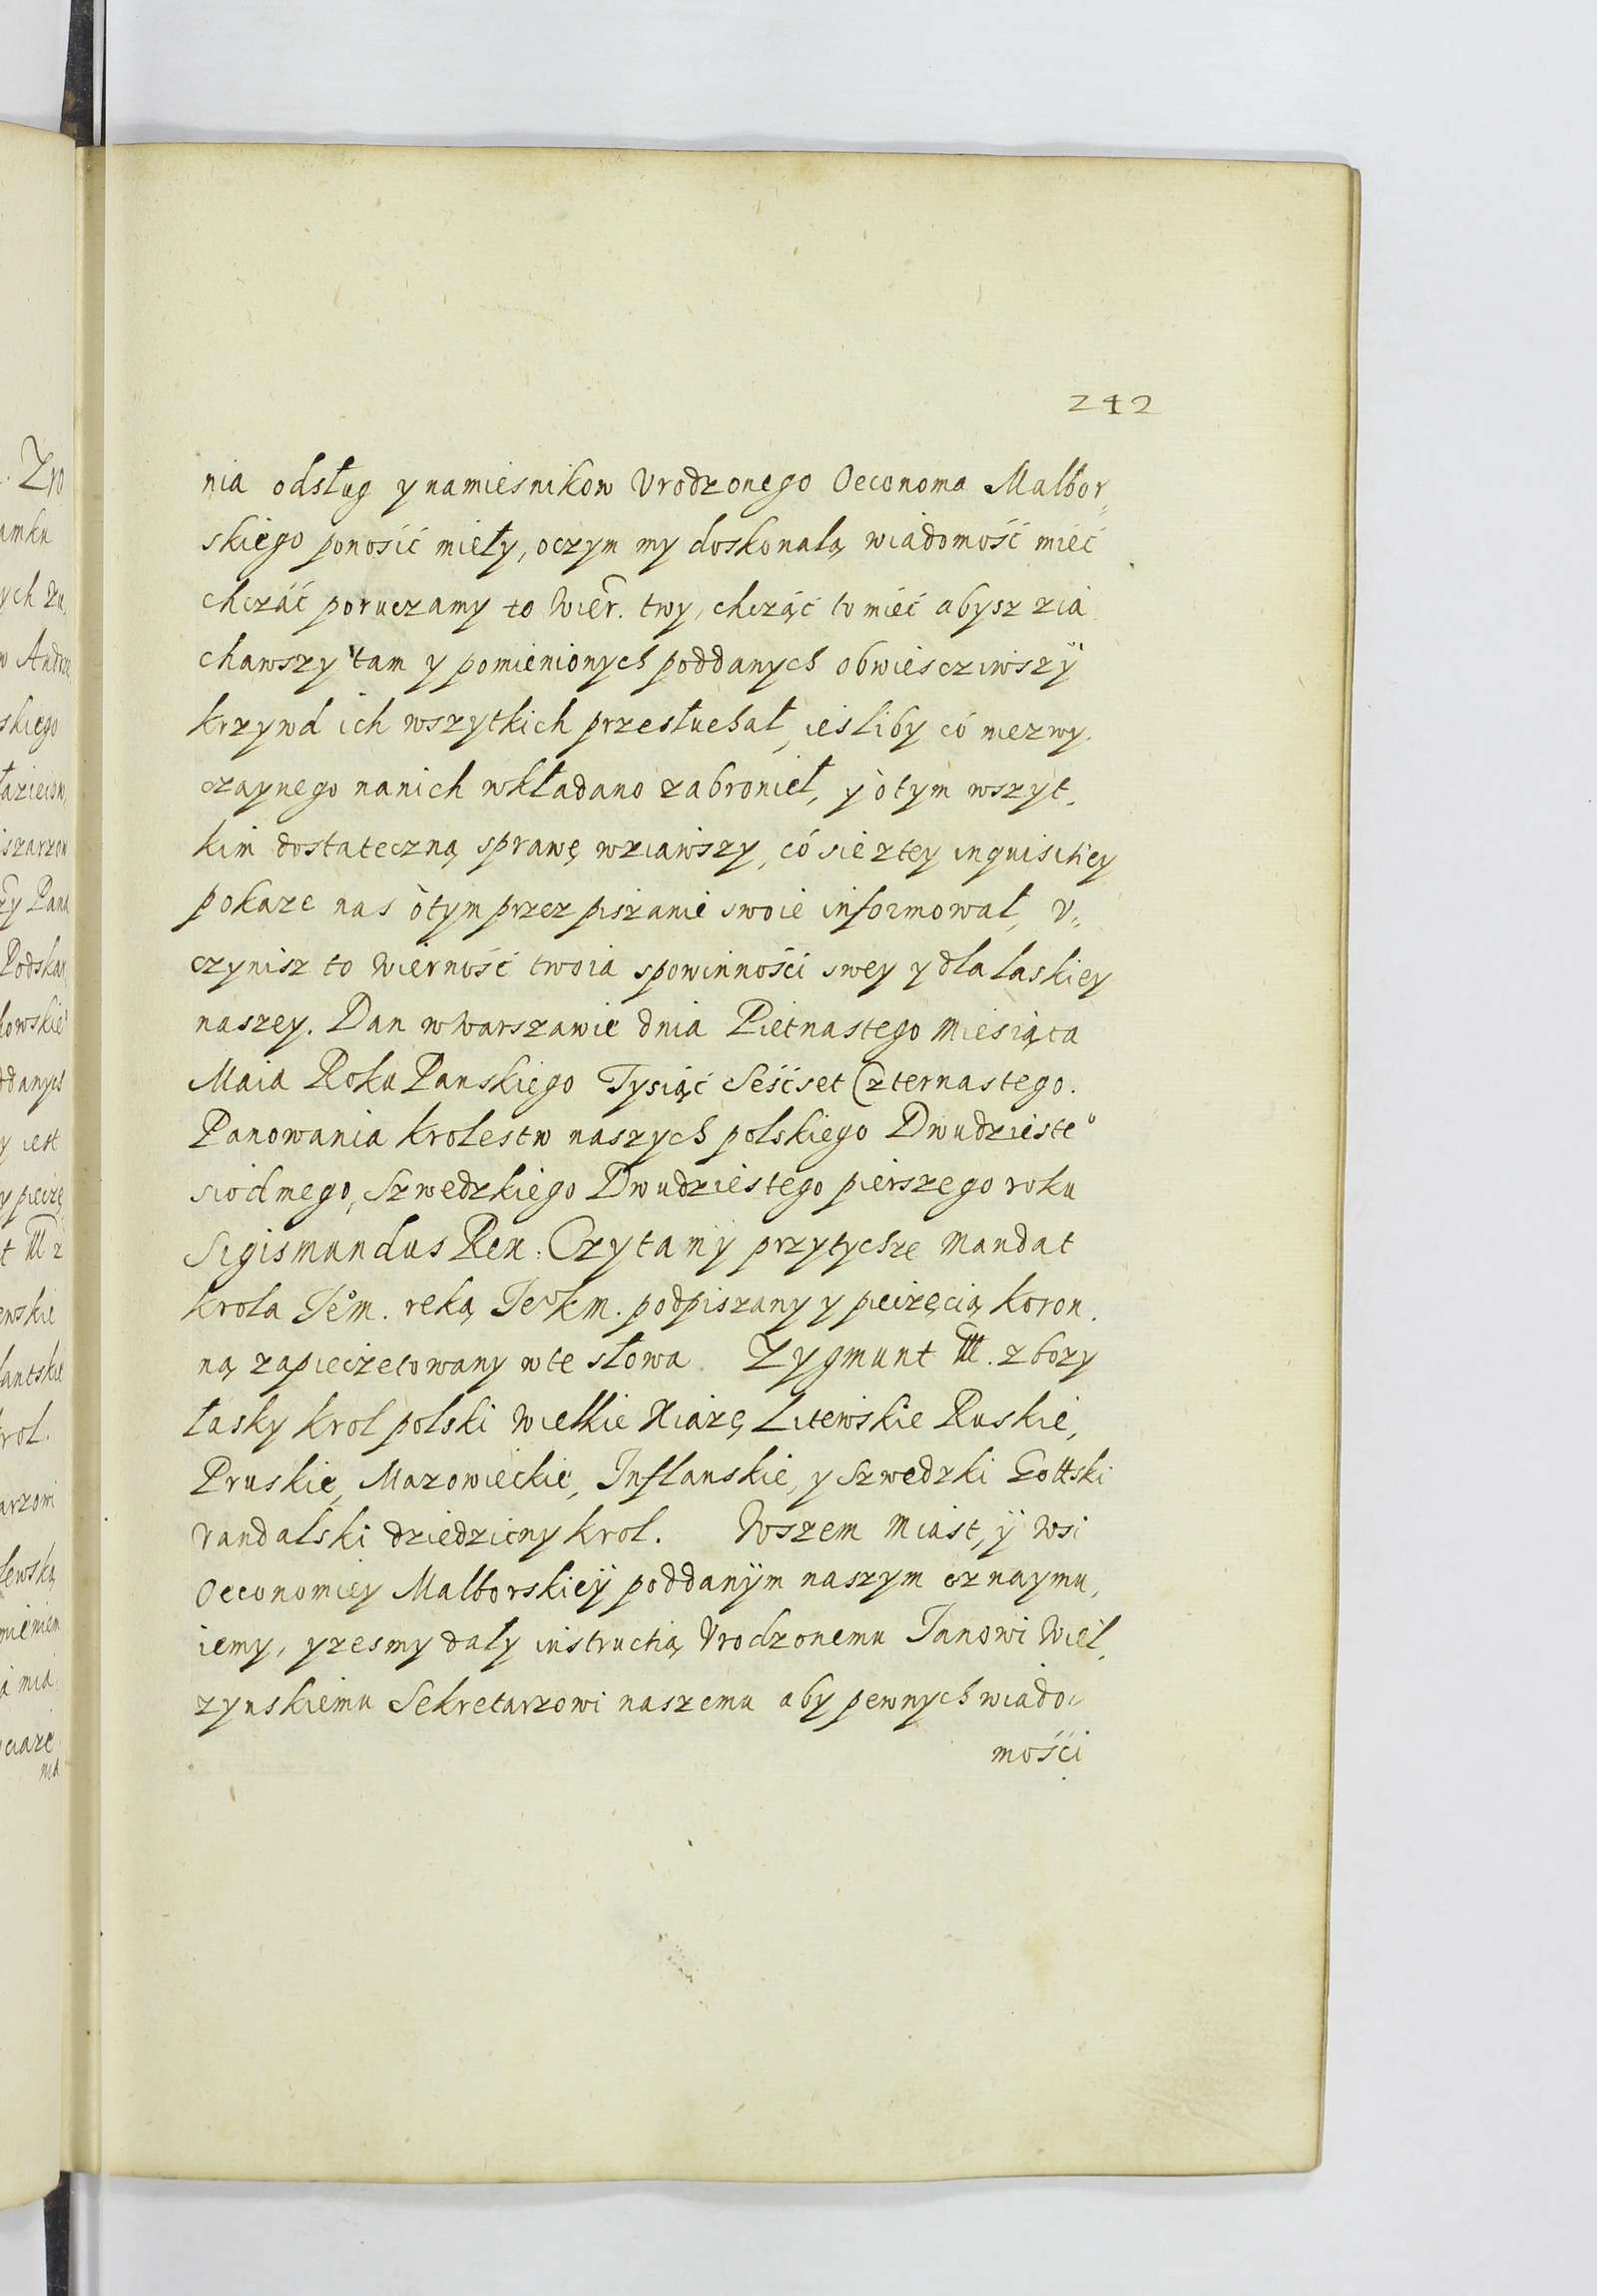 242
nia odsług y namiesnikow Vrodzonego Oeconoma Malbor,,
skiego ponosić miely, oczym my doskonałą wiadomość mieć
chcząć poruczamy to Wier. twy, chcząć to mieć abysz zia
chawszy tam y pomienionych poddanych obwiesciwszÿ
krzywd ich wszytkich przesłuchał, iesliby có niezwy.
czaynego nanich wkładano zabroniel, y òtym wszyt,
kim dostateczną sprawę wziawszy, có sie ztey inquisitiey
pokaze nas òtym przez piszanie swoie informował, V,,
czynisz to Wierność twoia spowinności swey y dla laskiey
naszey. Dan w Warszawie dnia Pietnastego Miesiąca
Maia Roku Panskiego Tysiąć Sešćset Czternastego.
Panowania krolestw naszych polskiego Dwudzieste°
siodmego, Szwedzkiego Dwudziestego pierszego roku
Sigismundus Rex. Czytany przytychze Mandat
krola Je°m. reką Je°km. podpiszany y pieczęcią koron.
ną zapieczetowany wte słowa. Zygmunt III. z bozy
łasky krol polski Wielkie Xiazę Litewskie Ruskie,
Pruskie, Mazowieckie, Inflanskie, y Szwedzki Gottski
Vandalski dziedziczny krol. Wszem Miast, ÿ Wsi
Oeconomiey Malborskieÿ poddanÿm naszym oznaymu,
iemy, yzesmy dały instructią Vrodzonemu Janowi Wiel,
zynskiemu Sekretarzowi naszemu aby pewnych wiado,,
mości
.Zro
amku
ych
w Andrze
skiego
Pana
Podskar
ddanych
y iest
t III z
ewskie
lantskie
krol.
arzowi
lewską
mieniem
a mia
nia